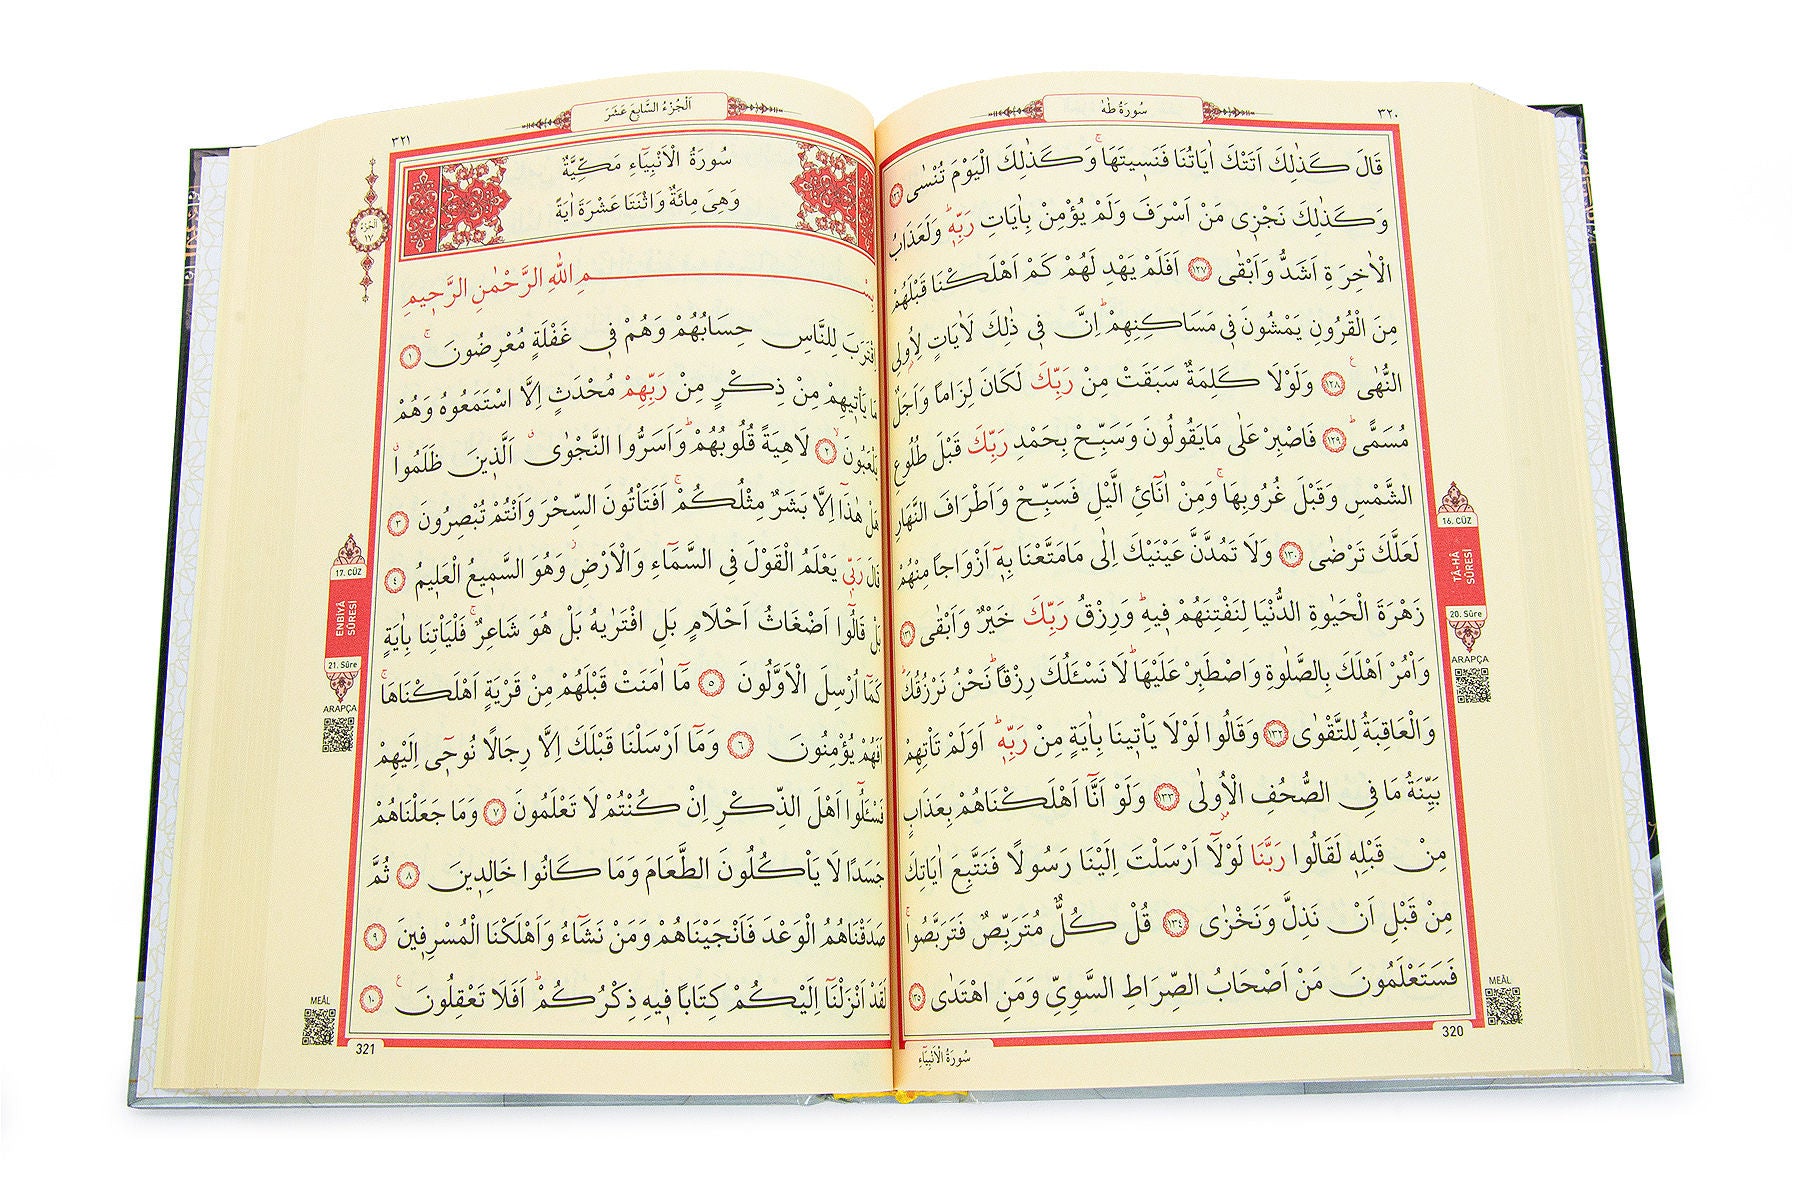 سُورَةُ طٰهٰ
٣٢٠
قَالَ كَذٰلِكَ اَتَتْكَ اٰيَاتُنَا فَنَسٖيتَهَاۚ وَكَذٰلِكَ الْيَوْمَ تُنْسٰى ﴿١٢٦﴾
وَكَذٰلِكَ نَجْزٖى مَنْ اَسْرَفَ وَلَمْ يُؤْمِنْ بِاٰيَاتِ رَبِّهٖؕ وَلَعَذَابُ
الْاٰخِرَةِ اَشَدُّ وَاَبْقٰى ﴿١٢٧﴾ اَفَلَمْ يَهْدِ لَهُمْ كَمْ اَهْلَكْنَا قَبْلَهُمْ
مِنَ الْقُرُونِ يَمْشُونَ فٖى مَسَاكِنِهِمْؕ اِنَّ فٖى ذٰلِكَ لَاٰيَاتٍ لِاُولِى
النُّهٰىࣖ ﴿١٢٨﴾ وَلَوْلَا كَلِمَةٌ سَبَقَتْ مِنْ رَبِّكَ لَكَانَ لِزَامًا وَاَجَلٌ
مُسَمًّىؕ ﴿١٢٩﴾ فَاصْبِرْ عَلٰى مَايَقُولُونَ وَسَبِّحْ بِحَمْدِ رَبِّكَ قَبْلَ طُلُوعِ
الشَّمْسِ وَقَبْلَ غُرُوبِهَاۚ وَمِنْ اٰنَآئِ الَّيْلِ فَسَبِّحْ وَاَطْرَافَ النَّهَارِ
لَعَلَّكَ تَرْضٰى ﴿١٣٠﴾ وَلَا تَمُدَّنَّ عَيْنَيْكَ اِلٰى مَامَتَّعْنَا بِهٖٓ اَزْوَاجًا مِنْهُمْ
زَهْرَةَ الْحَيٰوةِ الدُّنْيَا لِنَفْتِنَهُمْ فٖيهِؕ وَرِزْقُ رَبِّكَ خَيْرٌ وَاَبْقٰى ﴿١٣١﴾
وَاْمُرْ اَهْلَكَ بِالصَّلٰوةِ وَاصْطَبِرْ عَلَيْهَاؕ لَا نَسْـَٔلُكَ رِزْقًاؕ نَحْنُ نَرْزُقُكَؕ
وَالْعَاقِبَةُ لِلتَّقْوٰى ﴿١٣٢﴾ وَقَالُوا لَوْلَا يَاْتٖينَا بِاٰيَةٍ مِنْ رَبِّهٖؕ اَوَلَمْ تَاْتِهِمْ
بَيِّنَةُ مَا فِى الصُّحُفِ الْاُولٰى ﴿١٣٣﴾ وَلَوْ اَنَّٓا اَهْلَكْنَاهُمْ بِعَذَابٍ
مِنْ قَبْلِهٖ لَقَالُوا رَبَّنَا لَوْلَٓا اَرْسَلْتَ اِلَيْنَا رَسُولًا فَنَتَّبِعَ اٰيَاتِكَ
مِنْ قَبْلِ اَنْ نَذِلَّ وَنَخْزٰى ﴿١٣٤﴾ قُلْ كُلٌّ مُتَرَبِّصٌ فَتَرَبَّصُواۚ
فَسَتَعْلَمُونَ مَنْ اَصْحَابُ الصِّرَاطِ السَّوِىِّ وَمَنِ اهْتَدٰى ﴿١٣٥﴾
320
سُورَةُ الْاَنْبِيَٓاءِ
16. CÜZ
TÂ-HÂ
SÛRESİ
20. Sûre
ARAPÇA
MEÂL
اَلْجُزْءُ السَّابِعَ عَشَرَ
٣٢١
اَلْجُزْءُ
١٧
سُورَةُ الْاَنْبِيَٓاءِ مَكِّيَّةٌ
وَهِىَ مِائَةٌ وَاثْنَتَا عَشْرَةَ اٰيَةً
بِسْــــــمِ اللّٰهِ الرَّحْمٰنِ الرَّحٖيمِ
اِقْتَرَبَ لِلنَّاسِ حِسَابُهُمْ وَهُمْ فٖى غَفْلَةٍ مُعْرِضُونَۚ ﴿١﴾
مَا يَاْتٖيهِمْ مِنْ ذِكْرٍ مِنْ رَبِّهِمْ مُحْدَثٍ اِلَّا اسْتَمَعُوهُ وَهُمْ
يَلْعَبُونَۙ ﴿٢﴾ لَاهِيَةً قُلُوبُهُمْؕ وَاَسَرُّوا النَّجْوٰىۗ اَلَّذٖينَ ظَلَمُواۗ
هَلْ هٰذَٓا اِلَّا بَشَرٌ مِثْلُكُمْۚ اَفَتَاْتُونَ السِّحْرَ وَاَنْتُمْ تُبْصِرُونَ ﴿٣﴾
قَالَ رَبّٖى يَعْلَمُ الْقَوْلَ فِى السَّمَٓاءِ وَالْاَرْضِؗ وَهُوَ السَّمٖيعُ الْعَلٖيمُ ﴿٤﴾
بَلْ قَالُٓوا اَضْغَاثُ اَحْلَامٍ بَلِ افْتَرٰيهُ بَلْ هُوَ شَاعِرٌۚ فَلْيَاْتِنَا بِاٰيَةٍ
كَمَٓا اُرْسِلَ الْاَوَّلُونَ ﴿٥﴾ مَٓا اٰمَنَتْ قَبْلَهُمْ مِنْ قَرْيَةٍ اَهْلَكْنَاهَاۚ
اَفَهُمْ يُؤْمِنُونَ ﴿٦﴾ وَمَٓا اَرْسَلْنَا قَبْلَكَ اِلَّا رِجَالًا نُوحٖٓى اِلَيْهِمْ
فَسْـَٔلُٓوا اَهْلَ الذِّكْرِ اِنْ كُنْتُمْ لَا تَعْلَمُونَ ﴿٧﴾ وَمَا جَعَلْنَاهُمْ
جَسَدًا لَا يَاْكُلُونَ الطَّعَامَ وَمَا كَانُوا خَالِدٖينَ ﴿٨﴾ ثُمَّ
صَدَقْنَاهُمُ الْوَعْدَ فَاَنْجَيْنَاهُمْ وَمَنْ نَشَٓاءُ وَاَهْلَكْنَا الْمُسْرِفٖينَ ﴿٩﴾
لَقَدْ اَنْزَلْنَٓا اِلَيْكُمْ كِتَابًا فٖيهِ ذِكْرُكُمْؕ اَفَلَا تَعْقِلُونَࣖ ﴿١٠﴾
321
17. CÜZ
ENBİYÂ
SÛRESİ
21. Sûre
ARAPÇA
MEÂL